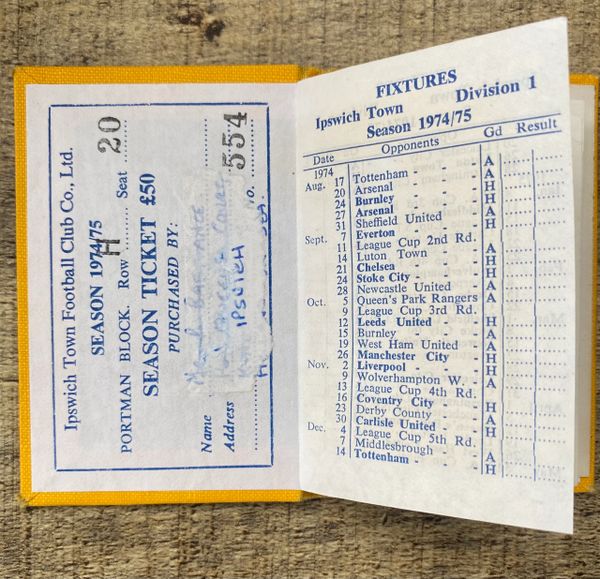 Ipswich Town Football Club Co., Ltd.
SEASON 1974/75
PORTMAN BLOCK. Row H Seat 20
SEASON TICKET £50
PURCHASED BY:
Name
Address IPSWICH No. 554
FIXTURES
Ipswich Town Division 1
Season 1974/75
Date Opponents Gd Result
1974
Aug. 17 Tottenham - - - A
20 Arsenal - - - A
24 Burnley - - - H
27 Arsenal - - - H
31 Sheffield United - - A
Sept. 7 Everton - - - H
11 League Cup 2nd Rd.
14 Luton Town - - A
21 Chelsea - - - H
24 Stoke City - - - H
28 Newcastle United - A
Oct. 5 Queen's Park Rangers A
9 League Cup 3rd Rd.
12 Leeds United - - H
15 Burnley - - - A
19 West Ham United - A
26 Manchester City - H
Nov. 2 Liverpool - - - H
9 Wolverhampton W. - A
13 League Cup 4th Rd.
16 Coventry City - - H
23 Derby County - - A
30 Carlisle United - - H
Dec. 4 League Cup 5th Rd.
7 Middlesbrough - - A
14 Tottenham - - - H